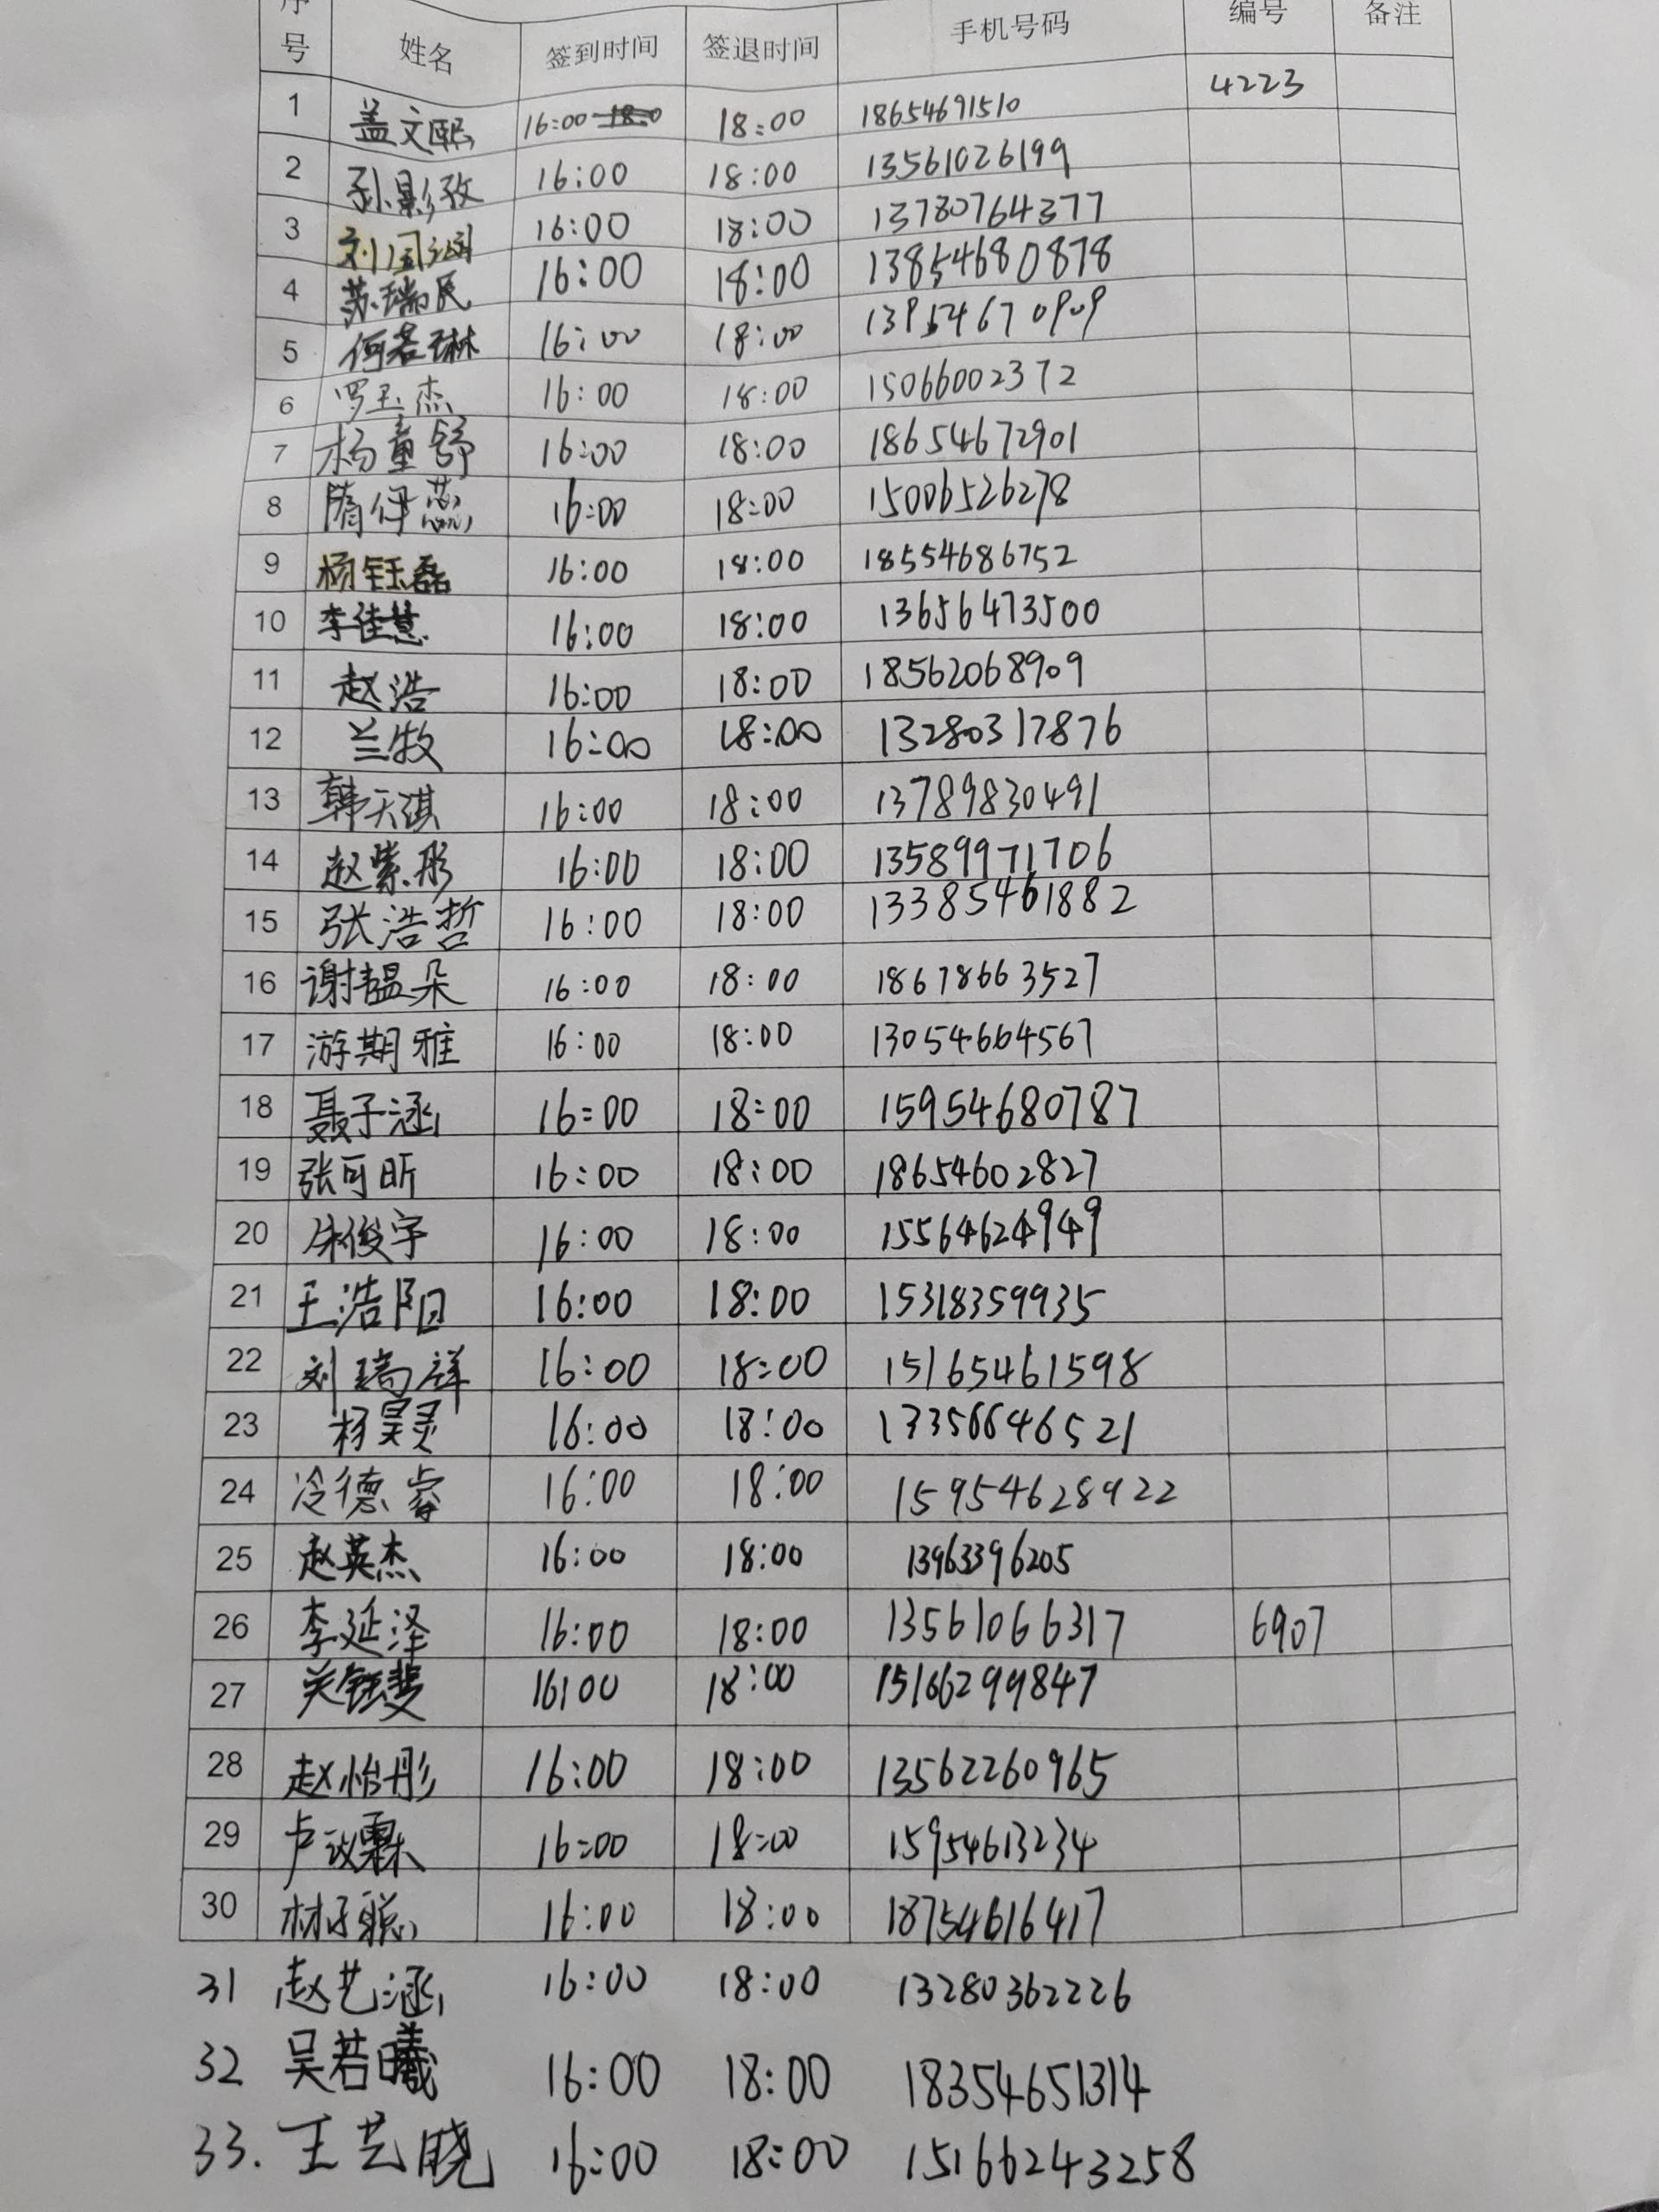 序号 姓名 签到时间 签退时间 手机号码 编号 备注
1 盖文熙 16:00 18:00 18654691510 4223
2 孙影孜 16:00 18:00 13561026199
3 刘国涵 16:00 18:00 13780764377
4 苏瑞民 16:00 18:00 13854680878
5 何若琳 16:00 18:00 13954670909
6 罗玉杰 16:00 18:00 15066002372
7 杨童舒 16:00 18:00 18654672901
8 隋伊蕊 16:00 18:00 15006526278
9 杨钰磊 16:00 18:00 18554686752
10 李佳慧 16:00 18:00 13656473500
11 赵浩 16:00 18:00 18562068909
12 兰牧 16:00 18:00 13280317876
13 韩天淇 16:00 18:00 13789830491
14 赵紫彤 16:00 18:00 13589971706
15 张浩哲 16:00 18:00 13385461882
16 谢韫朵 16:00 18:00 18678663527
17 游期雅 16:00 18:00 13054664567
18 聂子涵 16:00 18:00 15954680787
19 张可昕 16:00 18:00 18654602827
20 朱俊宇 16:00 18:00 15564624949
21 王浩阳 16:00 18:00 15318359935
22 刘瑞祥 16:00 18:00 15165461598
23 杨昊灵 16:00 18:00 13356646521
24 冷德睿 16:00 18:00 15954628922
25 赵英杰 16:00 18:00 13963396205
26 李延泽 16:00 18:00 13561066317 6907
27 关钰斐 16:00 18:00 15166299847
28 赵怡彤 16:00 18:00 13562260965
29 卢议霖 16:00 18:00 15954613234
30 林子聪 16:00 18:00 18754616417
31 赵艺涵 16:00 18:00 13280362226
32 吴若曦 16:00 18:00 18354651314
33. 王艺晓 16:00 18:00 15166243258